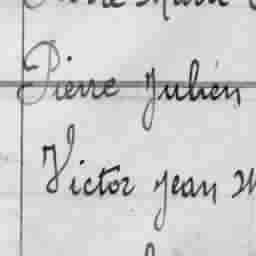 Pierre Julien
Victor Jean M